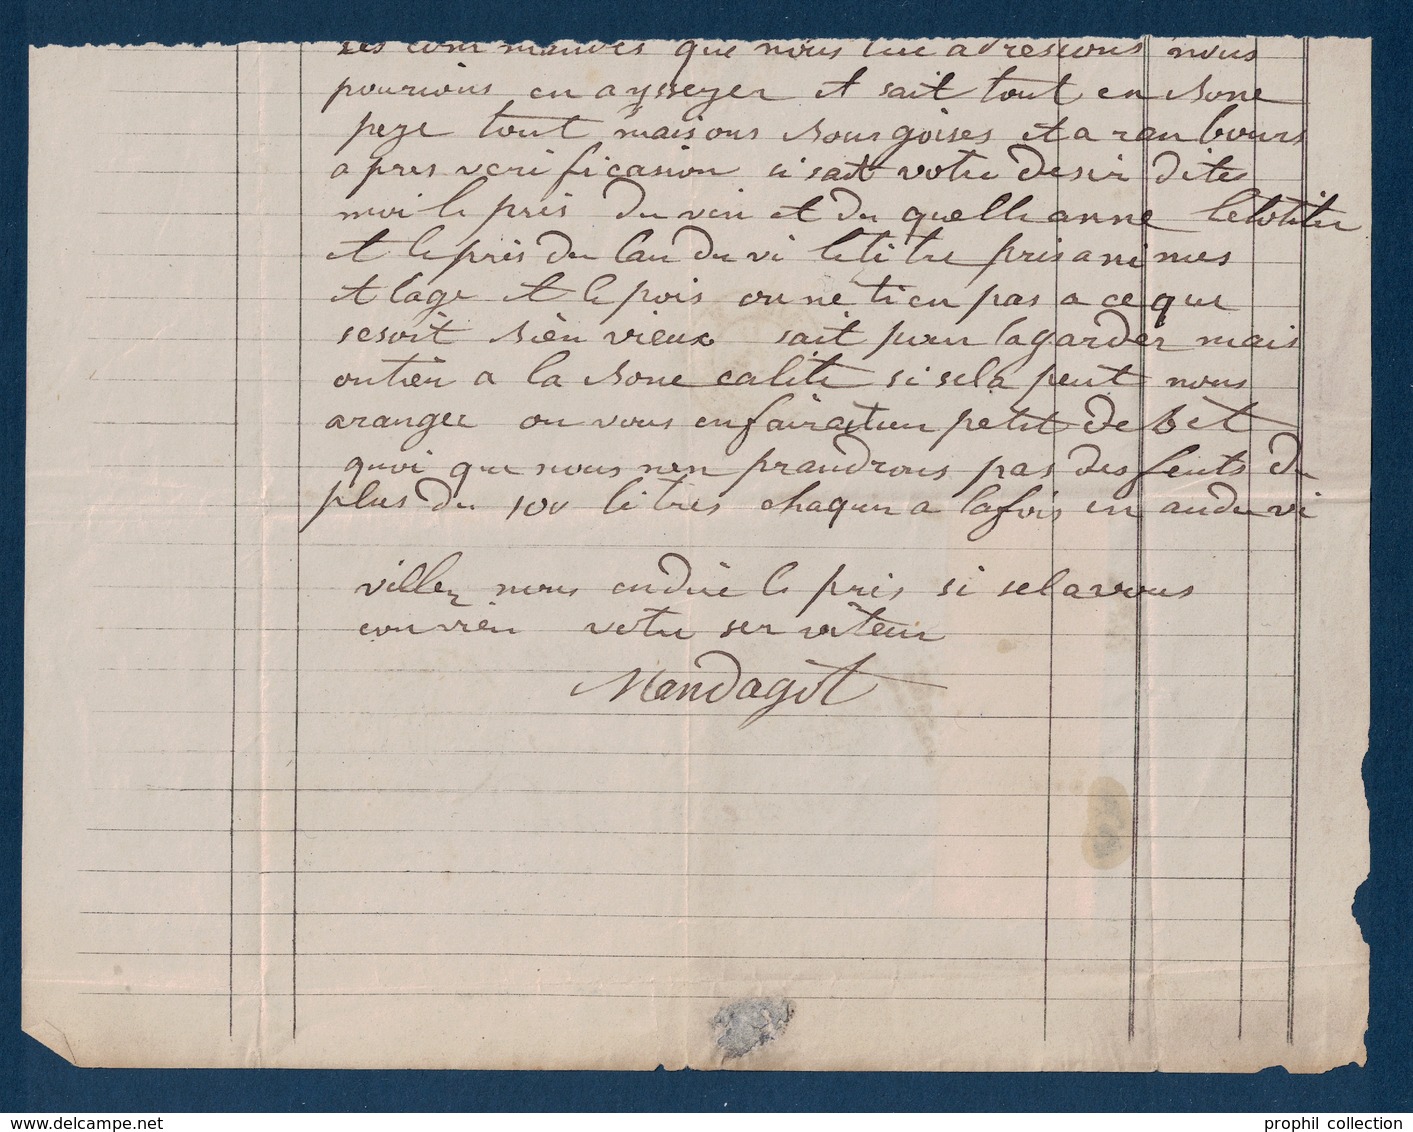 que nous lui adressions nous
pourions en aysseyer et sait tout en bone
peze tout maisons bourgoises et a ranbours
apres verificasion si sait votre desir dite
moi le pris du vin et du quelle anne le to litre
et le pris du lau du vi le litre pris a nimes
et lage et le pois on ne tien pas a ce que
se soit bien vieux sait pour la garder mais
on tien a la bone calite si sela peut nous
aranger on vous en fairait un petit debet
quoi que nous nen prandrons pas des feuts du
plus du 100 litres chaqun a la fois en au du vi
villez nous en dire le pris si sela vous
convien votre serviteur
Mandagot
prophil collection